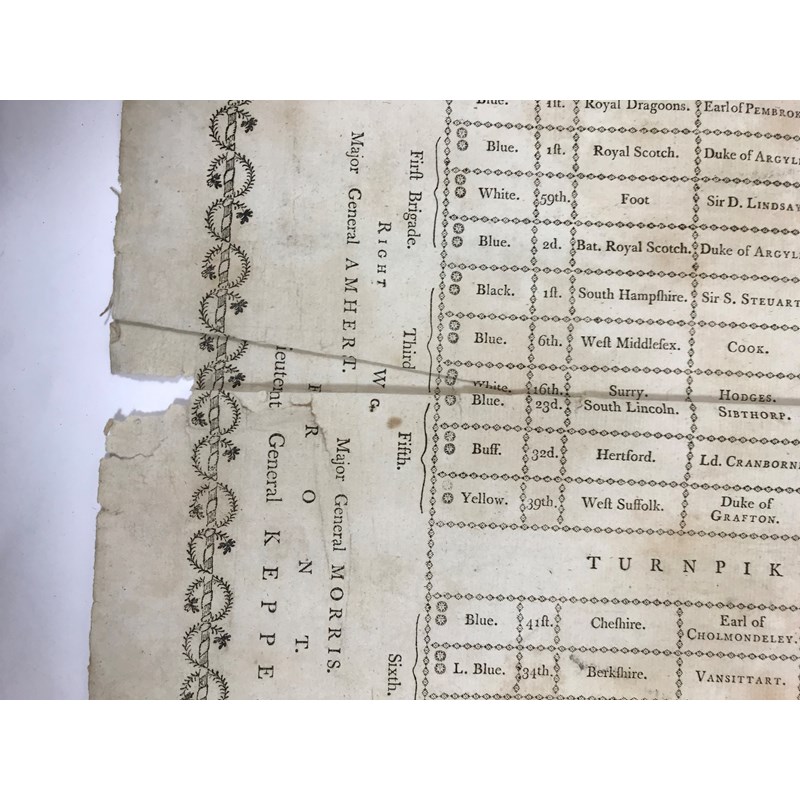 Blue. 1ſt. Royal Dragoons. Earl of PEMBROK
Blue. 1ſt. Royal Scotch. Duke of ARGYL
White. 59th. Foot Sir D. LINDSAY
Blue. 2d. Bat. Royal Scotch. Duke of ARGYL
Black. 1ſt. South Hampſhire. Sir S. STEUART
Blue. 6th. Weſt Middleſex. COOK.
White. 16th. Surry. HODGES.
Blue. 23d. South Lincoln. SIBTHORP.
Buff. 32d. Hertford. Ld. CRANBORN
Yellow. 39th. Weſt Suffolk. Duke of
GRAFTON.
TURNPIK
Blue. 41ſt. Cheſhire. Earl of
CHOLMONDELEY.
L. Blue. 34th. Berkſhire. VANSITTART.
Firſt Brigade. Third Fifth. Sixth.
RIGHT W G.
Major General AMHERT. Major General MORRIS.
FRONT.
ieutent General KEPPE